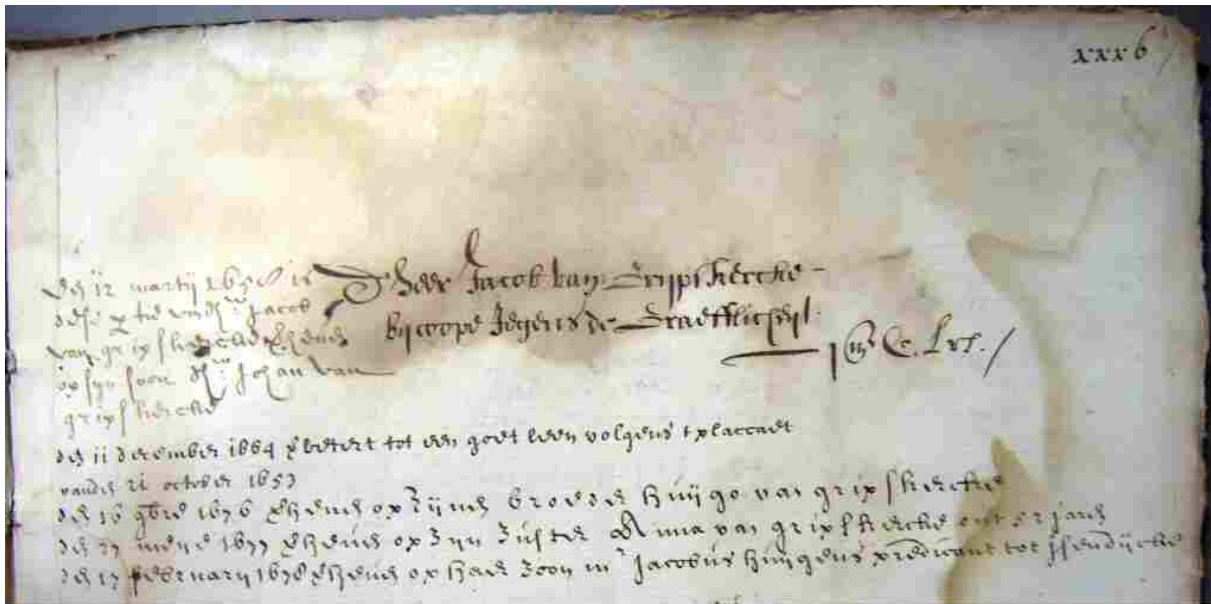 xxx6
den 12 martij 1658 is
dese x tie vuijt hr Jacob
van grijpskercke verheven
op sijn soon dhr Johan van
grijpskercke
Dheer Jacob van Grijpskercke
bij coope Jegens de Graefflicheijt
1 m C. Lrs.
den 11 december 1664 verbetert tot een goet leen volgens t placcaet
vanden 21 october 1653
den 16 9bre 1676 verheven op zijnen broeder Huijgo van grijpskercke
den 27 meije 1677 verheven op zijn zuster Anna van grijpskercke out 52 jaren
den 17 februarij 1678 verheven op haer zoon mr Jacobus Huijgens predicant tot Jsendijcke